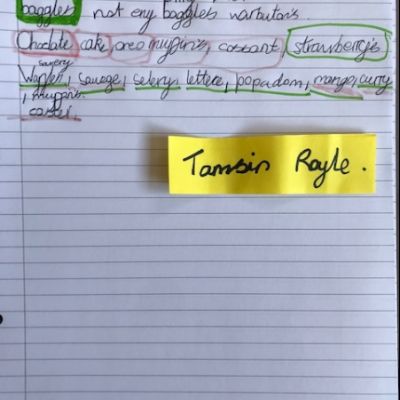 baggles not eny baggles warbutons.
Chocolate cake, oreo muffins, cossant, strawbergies
savery
Wagfen, sausage, selery, lettece, popadom, mange, curry
, muffins.
Tamsin Royle.